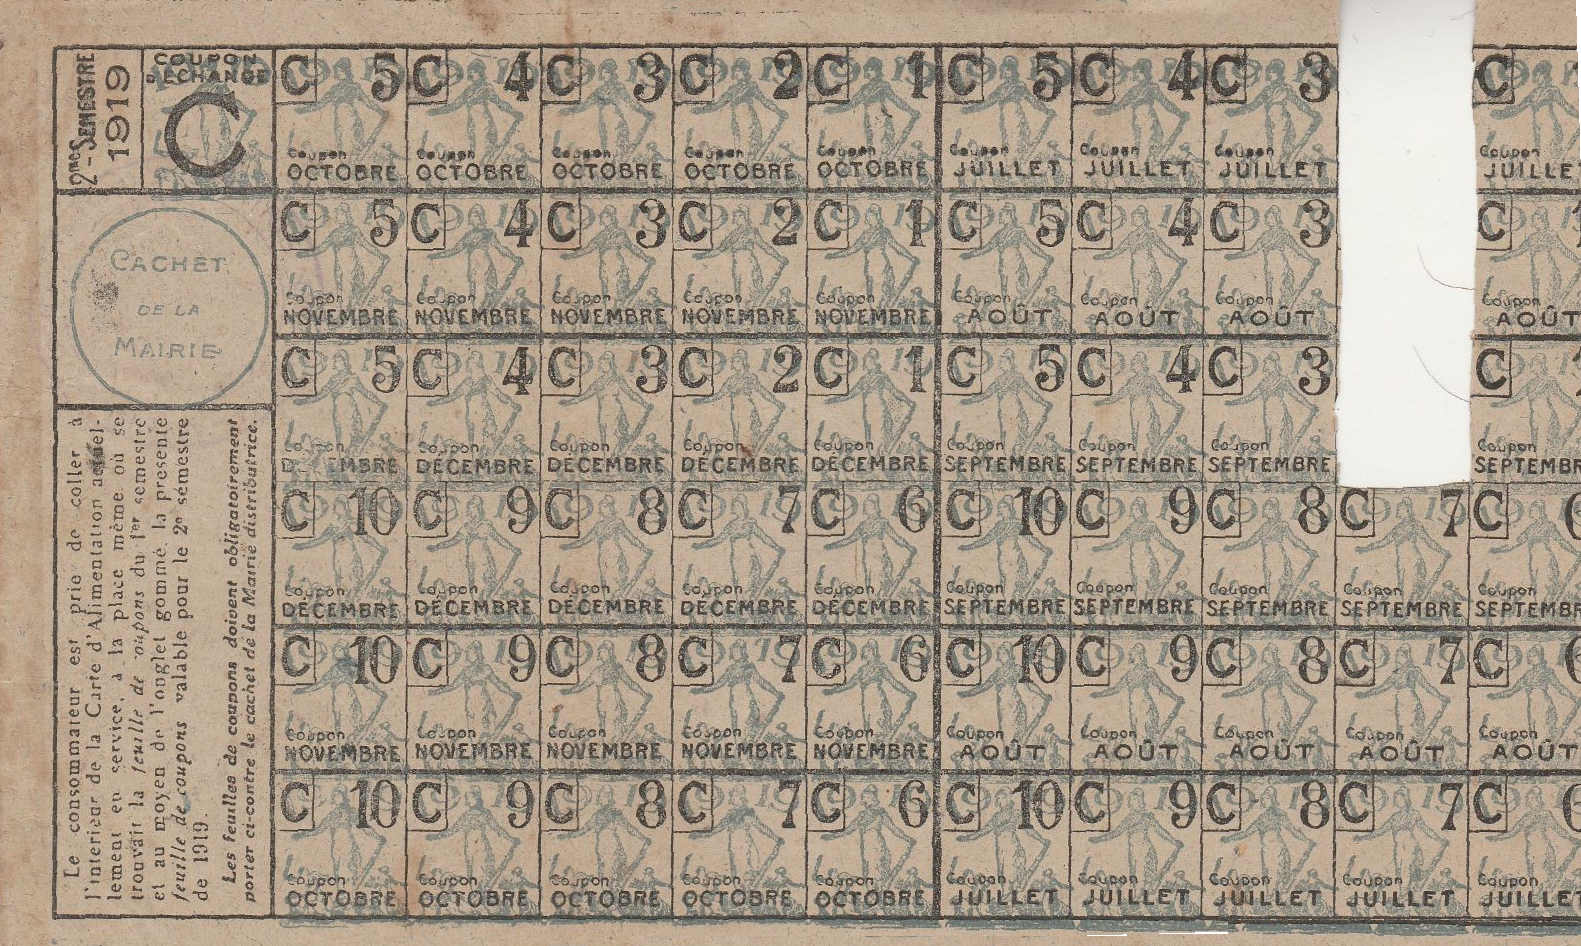 2me SEMESTRE
1919
COUPON
D'ÉCHANGE
C
CACHET
DE LA
MAIRIE
Le consommateur est prié de coller à
l'intérieur de la Carte d'Alimentation actuel-
lement en service, à la place même où se
trouvait la feuille de coupons du 1er semestre
et au moyen de l'onglet gommé, la présente
feuille de coupons valable pour le 2e semestre
de 1919.
Les feuilles de coupons doivent obligatoirement
porter ci-contre le cachet de la Mairie distributrice.
C 5 C 4 C 3 C 2 C 1 C 5 C 4 C 3 C 1
Coupon Coupon Coupon Coupon Coupon Coupon Coupon Coupon Coupon
OCTOBRE OCTOBRE OCTOBRE OCTOBRE OCTOBRE JUILLET JUILLET JUILLET JUILLET
C 5 C 4 C 3 C 2 C 1 C 5 C 4 C 3 C 1
Coupon Coupon Coupon Coupon Coupon Coupon Coupon Coupon Coupon
NOVEMBRE NOVEMBRE NOVEMBRE NOVEMBRE NOVEMBRE AOÛT AOÛT AOÛT AOÛT
C 5 C 4 C 3 C 2 C 1 C 5 C 4 C 3 C 1
Coupon Coupon Coupon Coupon Coupon Coupon Coupon Coupon Coupon
DÉCEMBRE DÉCEMBRE DÉCEMBRE DÉCEMBRE DÉCEMBRE SEPTEMBRE SEPTEMBRE SEPTEMBRE SEPTEMBR
C 10 C 9 C 8 C 7 C 6 C 10 C 9 C 8 C 7 C 6
Coupon Coupon Coupon Coupon Coupon Coupon Coupon Coupon Coupon Coupon
DÉCEMBRE DÉCEMBRE DÉCEMBRE DÉCEMBRE DÉCEMBRE SEPTEMBRE SEPTEMBRE SEPTEMBRE SEPTEMBRE SEPTEMBR
C 10 C 9 C 8 C 7 C 6 C 10 C 9 C 8 C 7 C 6
Coupon Coupon Coupon Coupon Coupon Coupon Coupon Coupon Coupon Coupon
NOVEMBRE NOVEMBRE NOVEMBRE NOVEMBRE NOVEMBRE AOÛT AOÛT AOÛT AOÛT AOÛT
C 10 C 9 C 8 C 7 C 6 C 10 C 9 C 8 C 7 C 6
Coupon Coupon Coupon Coupon Coupon Coupon Coupon Coupon Coupon Coupon
OCTOBRE OCTOBRE OCTOBRE OCTOBRE OCTOBRE JUILLET JUILLET JUILLET JUILLET JUILLET